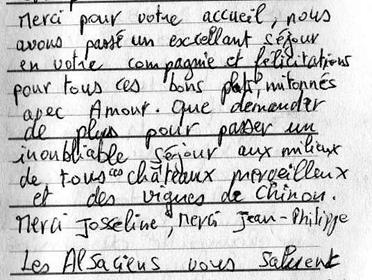 Merci pour votre accueil, nous
avons passé un excellant séjour
en votre compagnie et félicitations
pour tous ces bons plats, mitonnés
avec Amour. Que demander
de plus pour passer un
inoubliable séjour aux milieux
de tous ces châteaux merveilleux
et des vignes de Chinon.
Merci Josseline, Merci Jean-Philippe
Les Alsaciens vous saluent